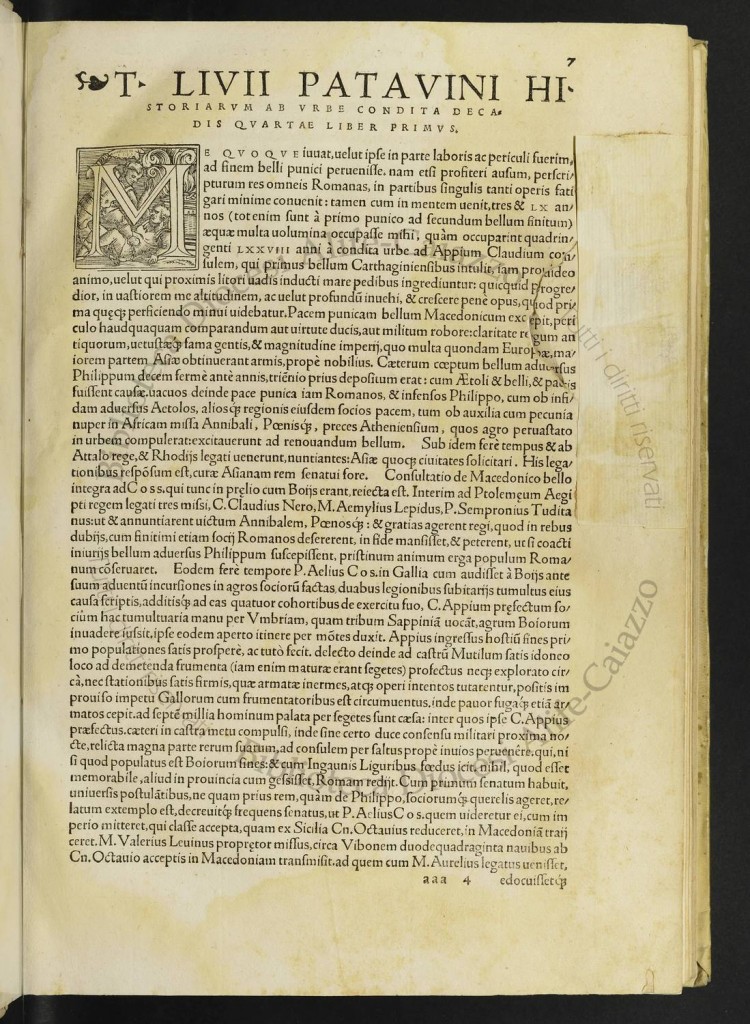 7
T. LIVII PATAVINI HI-
STORIARVM AB VRBE CONDITA DECA-
DIS QVARTAE LIBER PRIMVS.
ME QVOQVE iuuat, uelut ipse in parte laboris ac periculi fuerim,
ad finem belli punici peruenisse. nam etsi profiteri ausum, perscri-
pturum res omneis Romanas, in partibus singulis tanti operis fati
gari minime conuenit: tamen cum in mentem uenit, tres & LX an-
nos (tot enim sunt à primo punico ad secundum bellum finitum)
æquæ multa uolumina occupasse mihi, quàm occuparint quadrin-
genti LXXVIII anni à condita urbe ad Appium Claudium con-
sulem, qui primus bellum Carthaginiensibus intulit, iam prouideo
animo, uelut qui proximis litori uadis inducti mare pedibus ingrediuntur: quicquid progre-
dior, in uastiorem me altitudinem, ac uelut profundũ inuehi, & crescere penè opus, quod pri
ma quęqʒ perficiendo minui uidebatur. Pacem punicam bellum Macedonicum excepit, peri
culo haudquaquam comparandum aut uirtute ducis, aut militum robore: claritate regum an
tiquorum, uetustaqʒ fama gentis, & magnitudine imperij, quo multa quondam Europæ, ma-
iorem partem Asiæ obtinuerant armis, propè nobilius. Cæterum cœptum bellum aduersus
Philippum decem fermè antè annis, triẽnio prius depositum erat: cum Ætoli & belli, & pacis
fuissent causæ. uacuos deinde pace punica iam Romanos, & infensos Philippo, cum ob infi-
dam aduersus Aetolos, aliosqʒ regionis eiusdem socios pacem, tum ob auxilia cum pecunia
nuper in Africam missa Annibali, Pœnisqʒ, preces Atheniensium, quos agro peruastato
in urbem compulerat: excitauerunt ad renouandum bellum. Sub idem ferè tempus & ab
Attalo rege, & Rhodijs legati uenerunt, nuntiantes: Asiæ quoqʒ ciuitates solicitari. His lega-
tionibus respõsum est, curæ Asianam rem senatui fore. Consultatio de Macedonico bello
integra ad Coss. qui tunc in prelio cum Boijs erant, reiecta est. Interim ad Ptolemęum Aegi
pti regem legati tres missi, C. Claudius Nero, M. Aemylius Lepidus, P. Sempronius Tudita
nus: ut & annuntiarent uictum Annibalem, Pœnosqʒ: & gratias agerent regi, quod in rebus
dubijs, cum finitimi etiam socij Romanos desererent, in fide mansisset, & peterent, ut si coacti
iniurijs bellum aduersus Philippum suscepissent, pristinum animum erga populum Roma-
num cõseruaret. Eodem ferè tempore P. Aelius Cos. in Gallia cum audisset à Boijs ante
suum aduentũ incursiones in agros sociorũ factas, duabus legionibus subitarijs tumultus eius
causa scriptis, additisqʒ ad eas quatuor cohortibus de exercitu suo, C. Appium pręfectum so-
ciũm hac tumultuaria manu per Vmbriam, quam tribum Sappiniã uocãt, agrum Boiorum
inuadere iussit. ipse eodem aperto itinere per mõtes duxit. Appius ingressus hostiũ fines pri
mo populationes satis prosperè, ac tutò fecit. delecto deinde ad castrũ Mutilum satis idoneo
loco ad demetenda frumenta (iam enim maturæ erant segetes) profectus neqʒ explorato cir-
cà, nec stationibus satis firmis, quæ armatæ inermes, atqʒ operi intentos tutarentur, positis im
prouiso impetu Gallorum cum frumentatoribus est circumuentus, inde pauor fugaqʒ etiã ar-
matos cepit. ad septẽ millia hominum palata per segetes sunt cæsa: inter quos ipse C. Appius
præfectus. cæteri in castra metu compulsi, inde sine certo duce consensu militari proxima no-
cte, relicta magna parte rerum suarum, ad consulem per saltus propè inuios peruenere. qui, ni
si quod populatus est Boiorum fines: & cum Ingaunis Liguribus fœdus icit, nihil, quod esset
memorabile, aliud in prouincia cum gessisset, Romam redijt. Cum primum senatum habuit,
uniuersis postulãtibus, ne quam prius rem, quàm de Philippo, sociorumqʒ querelis ageret, re-
latum extemplo est, decreuitqʒ frequens senatus, ut P. Aelius Cos. quem uideretur ei, cum im
perio mitteret, qui classe accepta, quam ex Sicilia Cn. Octauius reduceret, in Macedoniã traij
ceret. M. Valerius Leuinus proprętor missus, circa Vibonem duodequadraginta nauibus ab
Cn. Octauio acceptis in Macedoniam transmisit. ad quem cum M. Aurelius legatus uenisset,
aaa 4 edocuissetqʒ
Tutti i diritti riservati
Biblioteca Diocesi Alife-Caiazzo